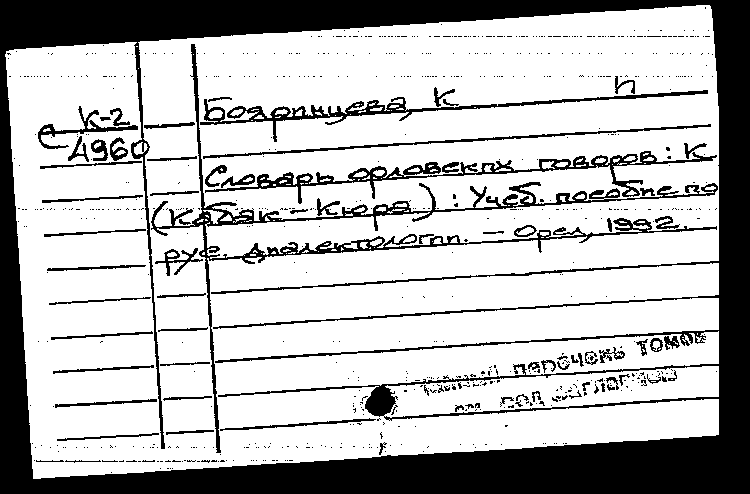 Бояринцева, К п
С К-2
4960
Словарь орловских говоров: К
(Кабак - Кюра) : Учеб. пособие по
рус. диалектологии. - Орел, 1992.
Полный перечень томов
см. под заглавием